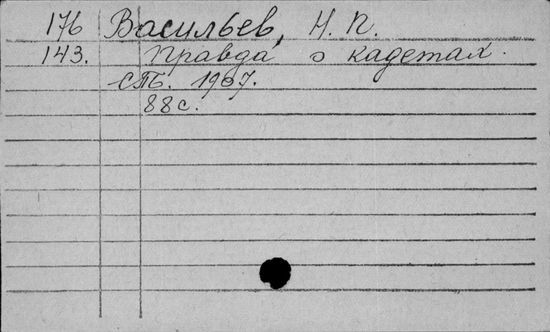 176 Васильев, Н. П.
143. Правда о кадетах.
СПб. 1907.
88 с.